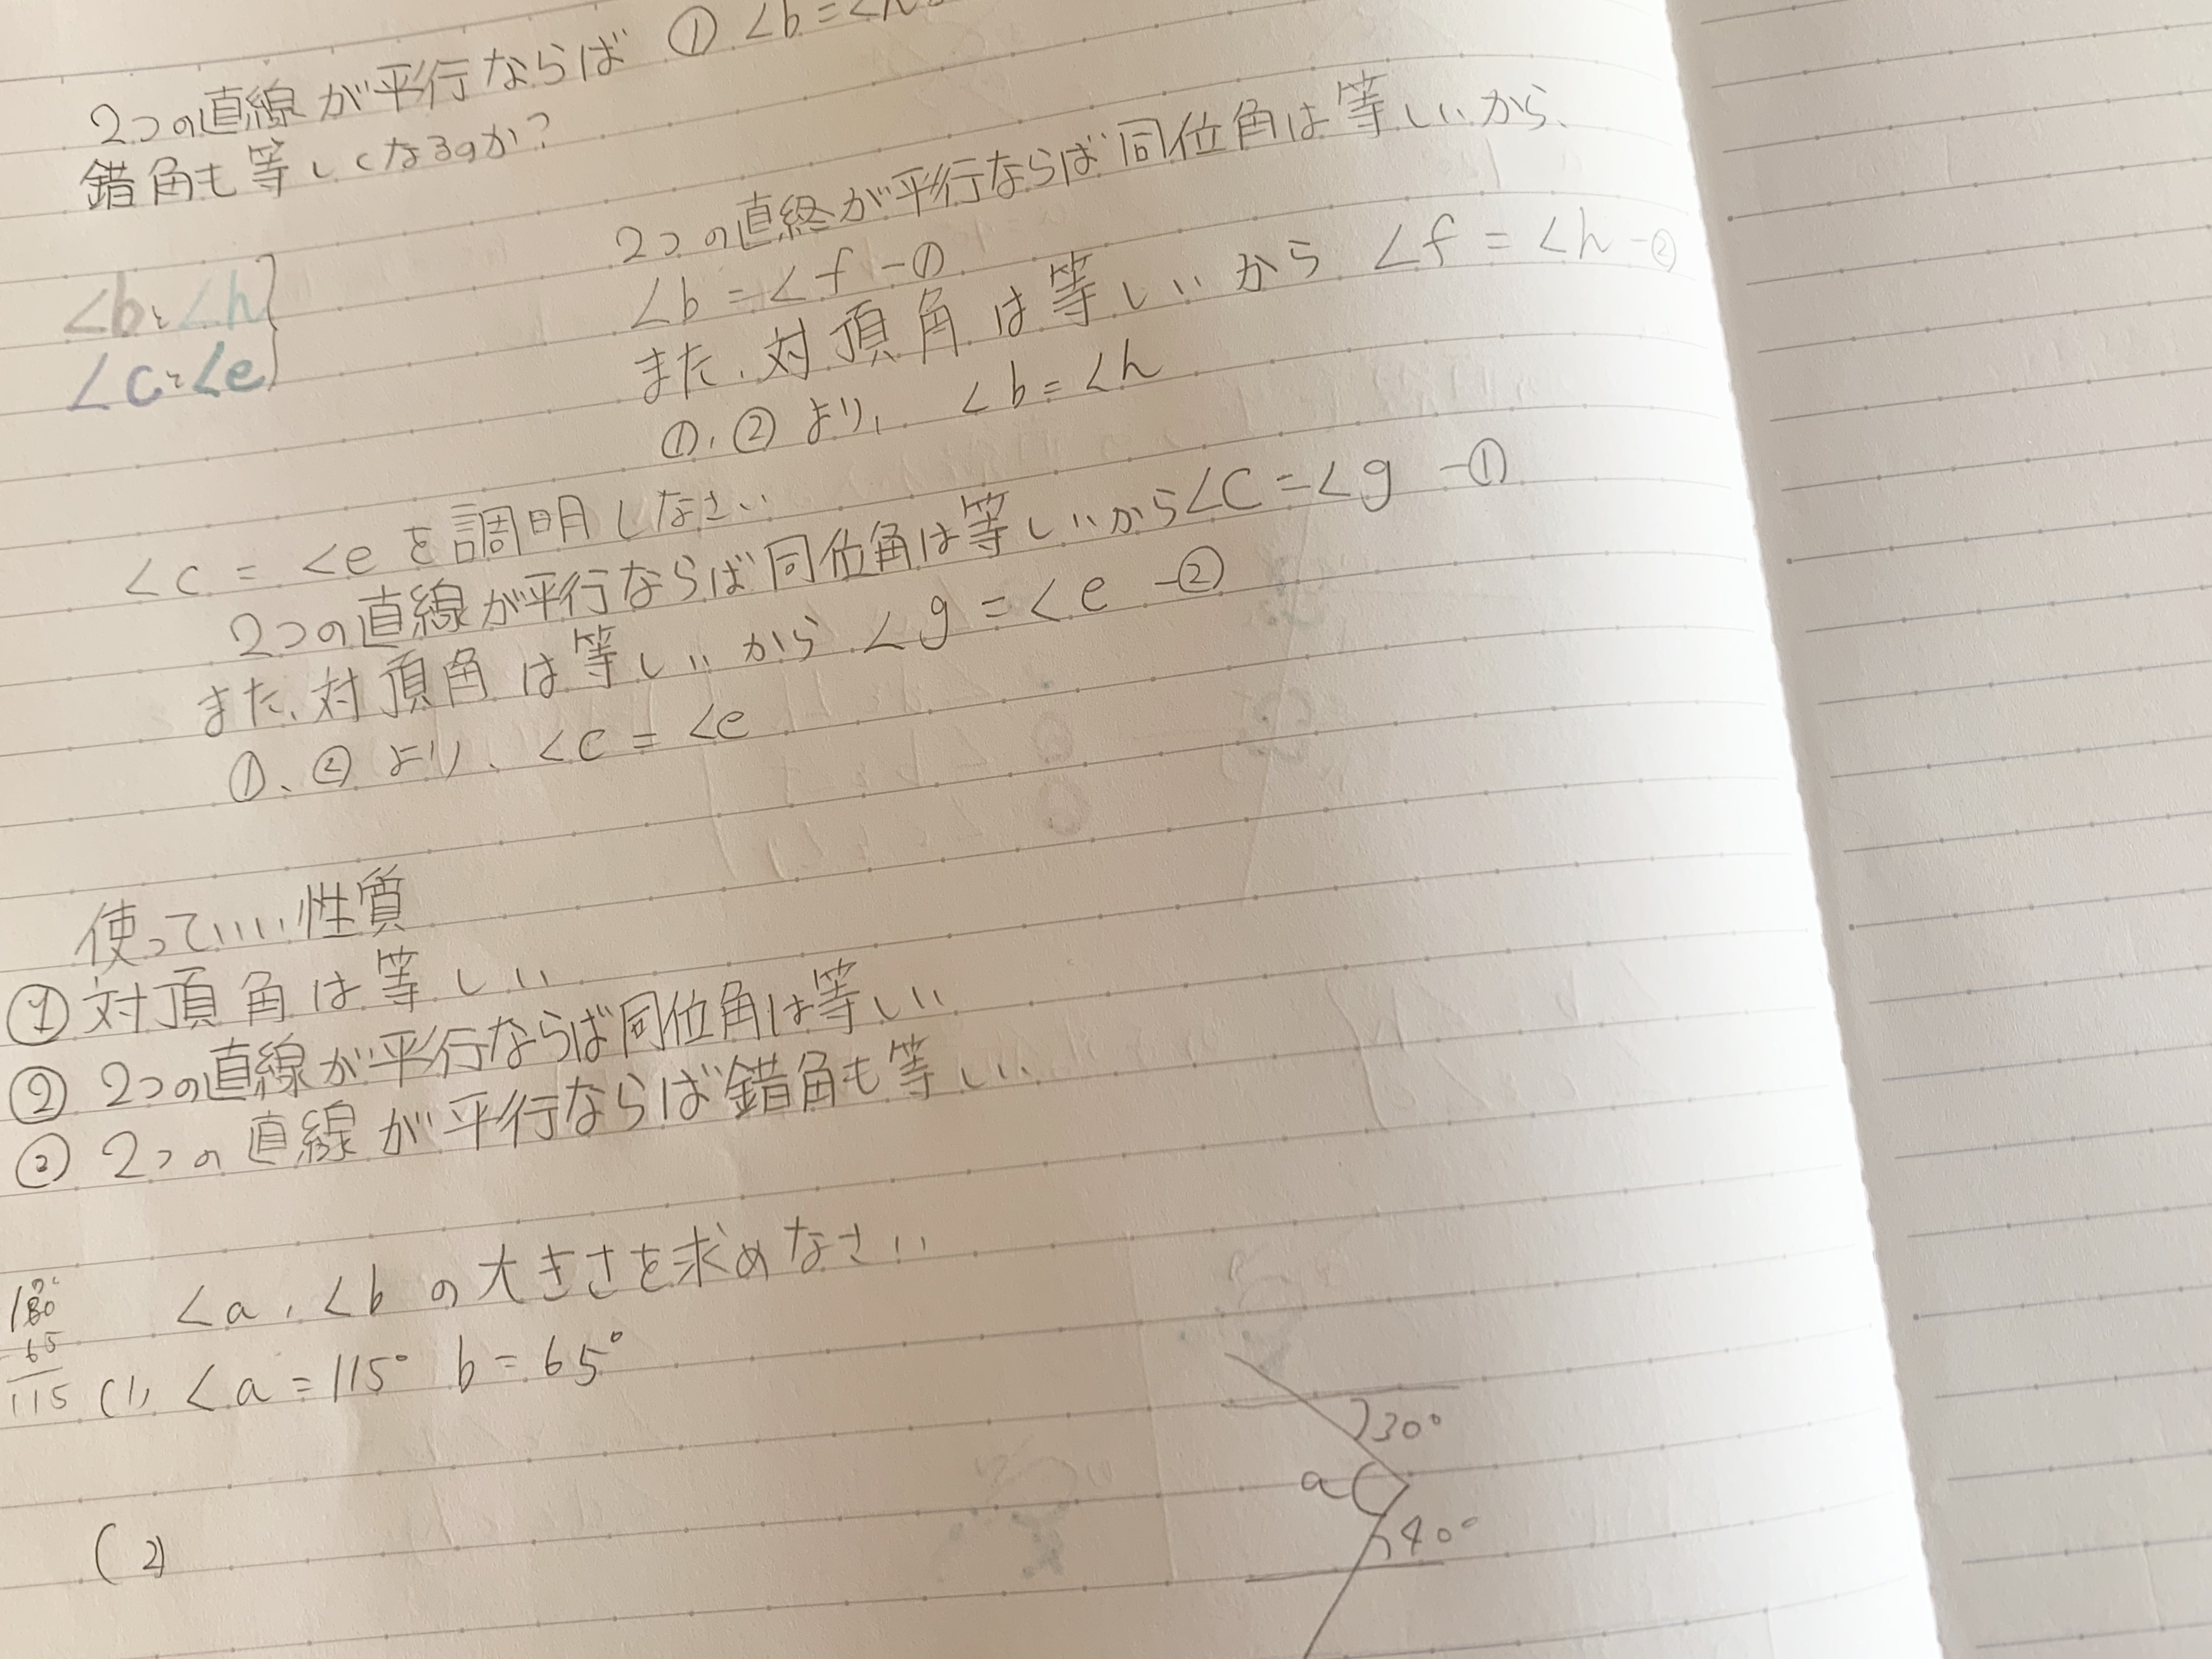 2つの直線が平行ならば ① ∠b=∠h
錯角も等しくなるのか?
∠bと∠h
∠cと∠e
2つの直終が平行ならば同位角は等しいから、
∠b=∠f-①
また、対頂角は等しいから ∠f=∠h-②
①、②より、∠b=∠h
∠c=∠eを調明しなさい
2つの直線が平行ならば同位角は等しいから∠c=∠g-①
また、対頂角は等しいから∠g=∠e-②
①、②より、∠c=∠e
使っていい性質
①対頂角は等しい
②2つの直線が平行ならば同位角は等しい
③2つの直線が平行ならば錯角も等しい
∠a、∠bの大きさを求めなさい
180
65
115
(1) ∠a=115° b=65°
(2)
30°
a
40°